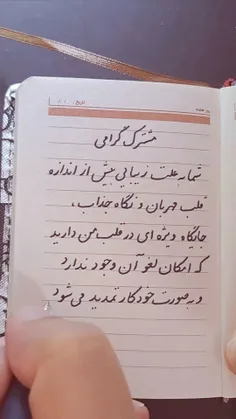 مشترک گرامی
شما به علت زیبایی بیش از اندازه
قلب مهربان و نگاه جذاب،
جایگاه ویژه ای در قلب من دارید
که امکان لغو آن وجود ندارد
و به صورت خودکار تمدید می شود